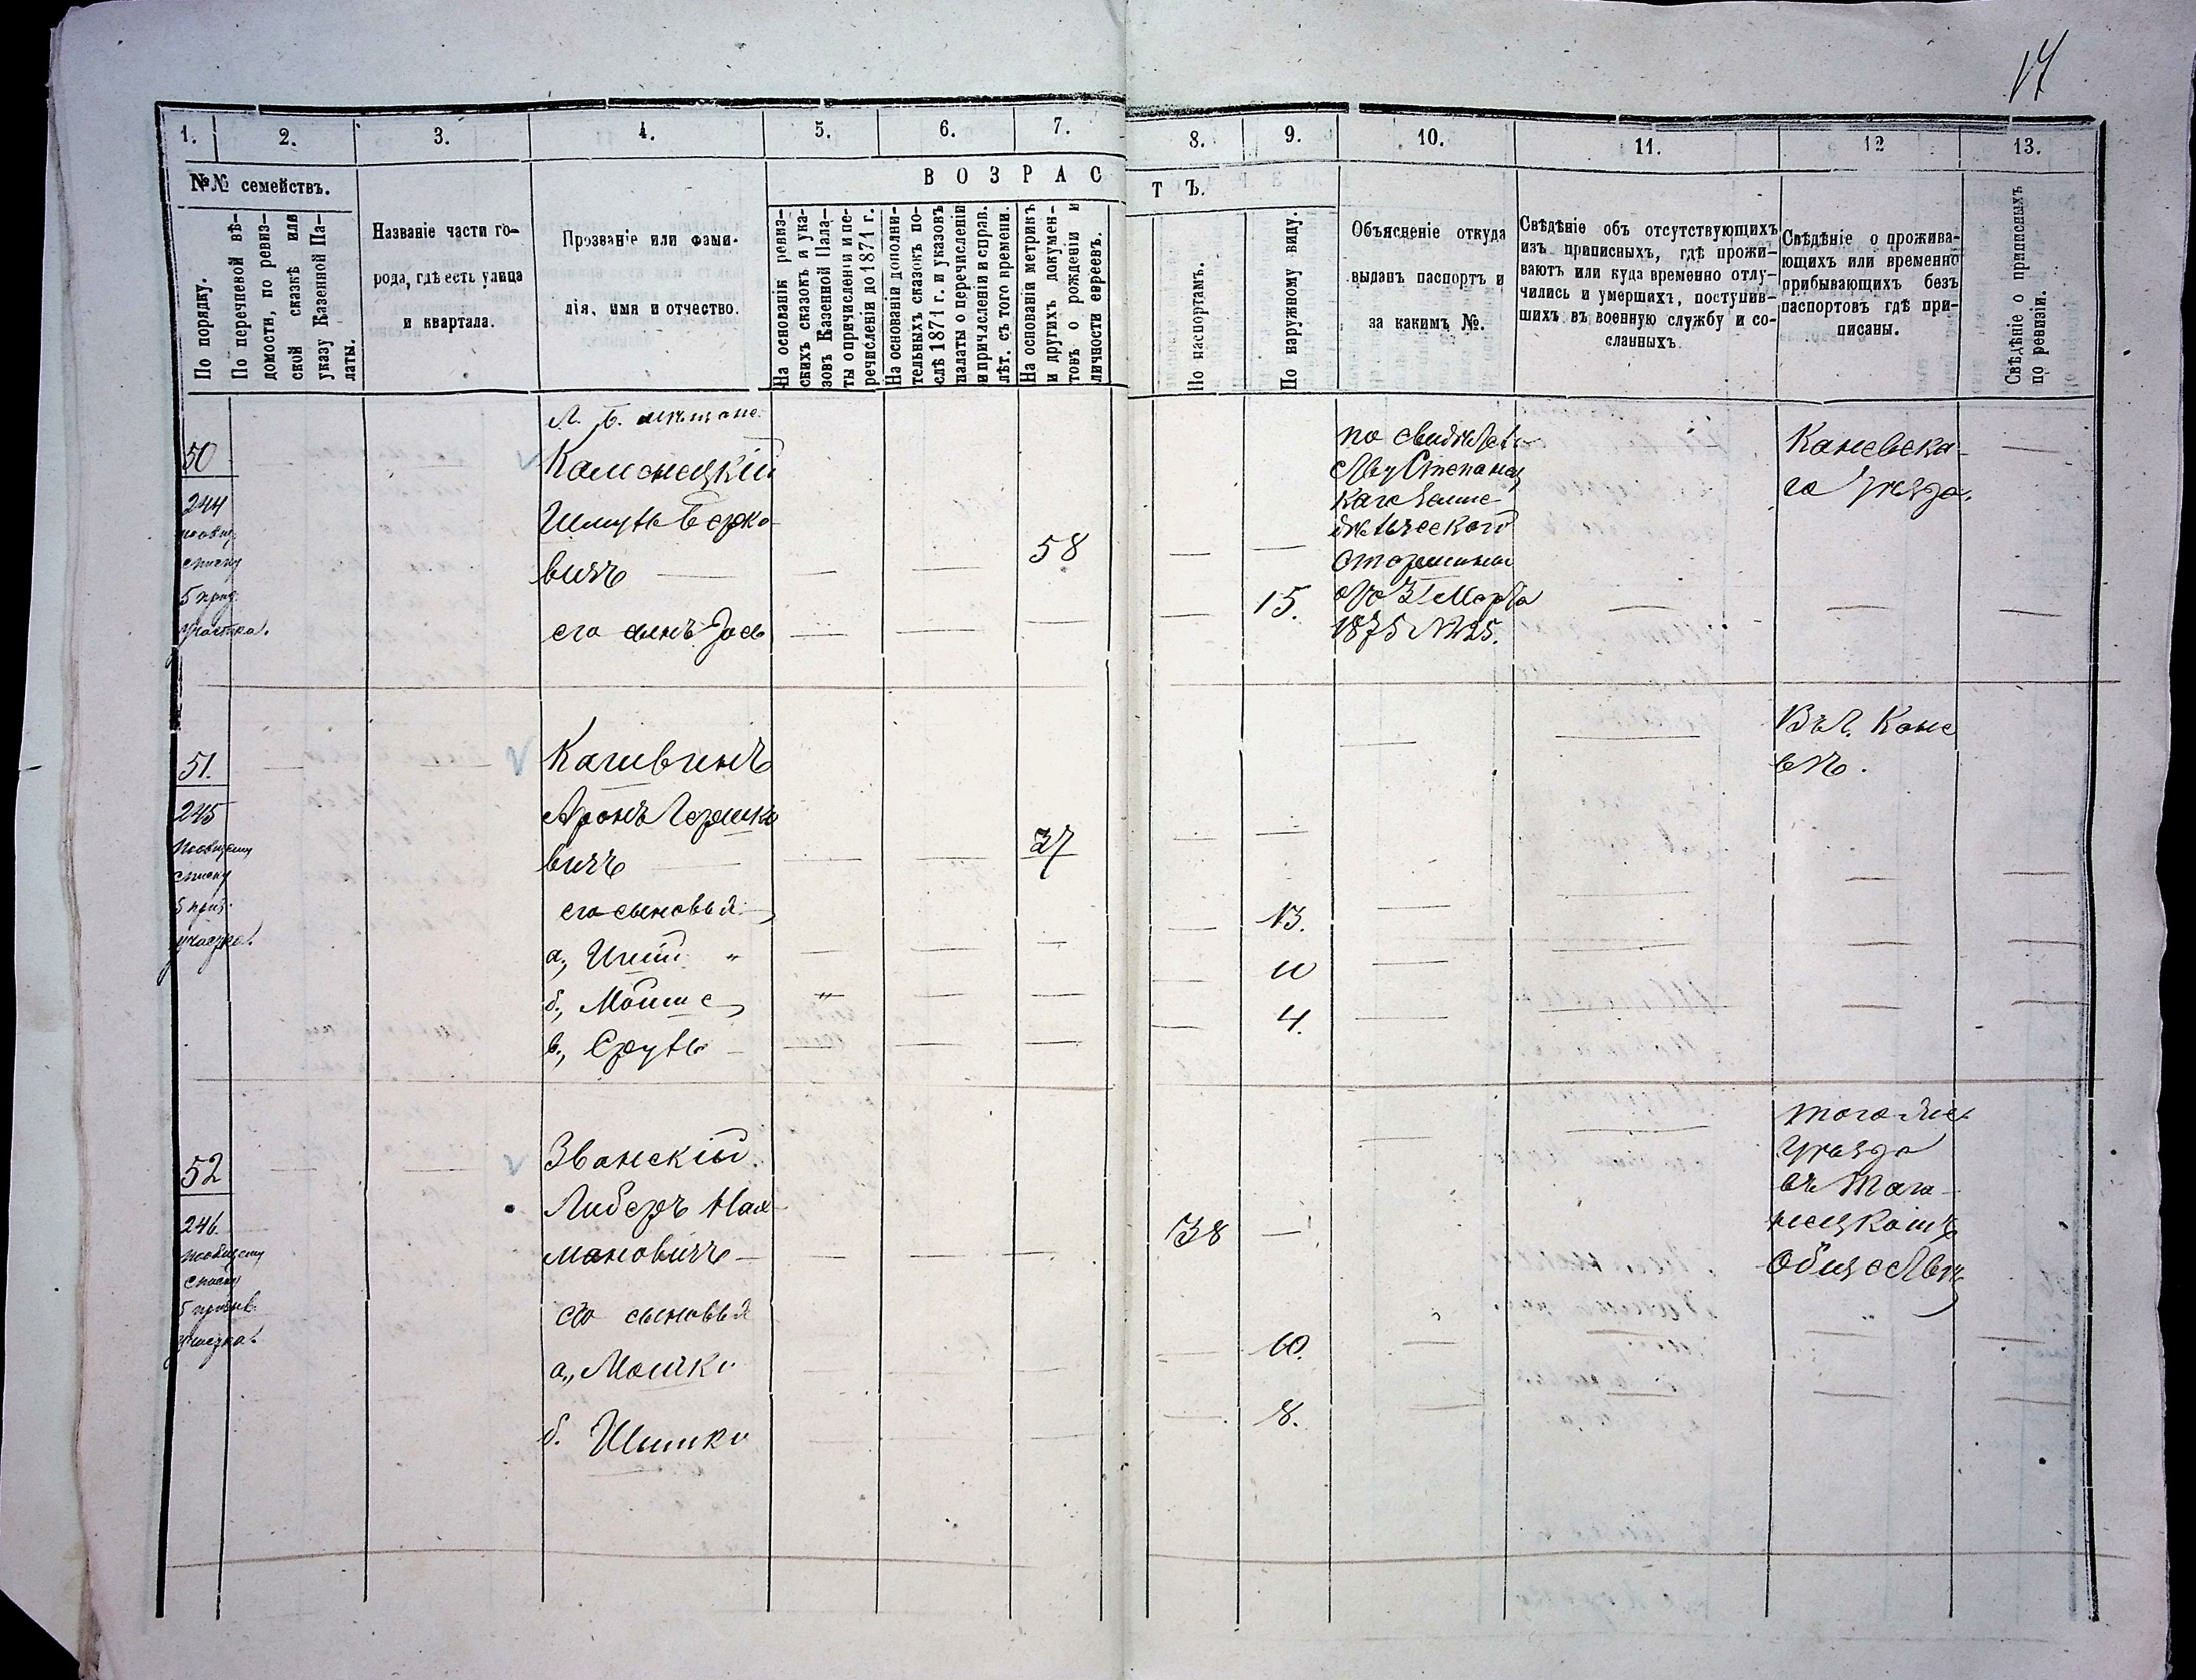 17
1. 2. 3. 4. 5. 6. 7. 8. 9. 10. 11. 12 13.
№№ семействъ.
В О З Р А С Т Ъ.
По порядку.
По перечневой вѣ-
домости, по ревиз-
ской сказкѣ или
указу Казенной Па-
латы.
Названіе части го-
рода, гдѣ есть улица
и квартала.
Прозваніе или фами-
лія, имя и отчество.
На основаніи ревиз-
скихъ сказокъ и ука-
зовъ Казенной Пала-
ты о причисленіи и пе-
речисленіи до 1871 г.
На основаніи дополни-
тельныхъ сказокъ по-
слѣ 1871 г. и указовъ
палаты о перечисленіи
и причисленіи и справ.
лѣт. съ того времени.
На основаніи метрикъ
и другихъ докумен-
товъ о рожденіи и
личности евреевъ.
По паспортамъ.
По наружному виду.
Объясненіе откуда
выданъ паспортъ и
за какимъ №.
Свѣдѣніе объ отсутствующихъ
изъ приписныхъ, гдѣ прожи-
ваютъ или куда временно отлу-
чились и умершихъ, поступив-
шихъ въ военную службу и со-
сланныхъ.
Свѣдѣніе о прожива-
ющихъ или временно
прибывающихъ безъ
паспортовъ гдѣ при-
писаны.
Свѣдѣніе о приписныхъ
по ревизіи.
50
244
списку
5 приз.
участка.
Каменецкій
Шмуль Берко-
вичъ — 58
его сынъ Іось 15.
по свидѣтель
ству Степанец
каго
старшины
отъ 3 Марта
1875 № 25.
Каневска-
го уѣзда.
51.
245
по общему
списку
5 приз.
участка.
Кагивинъ
Аронъ Гершко
вичъ 37
его сыновья
а, Ицій " 13.
б, Мойше " 10
в, Сруль 4.
Въ г. Кане
вѣ.
52
246.
по общему
списку
5 призыв.
участка.
Званскій
Либеръ Нах-
мановичъ — 38
его сыновья
а., Мошко 10.
б. Шимко 8.
того же
уѣзда
въ Тага-
нецкомъ
обществѣ